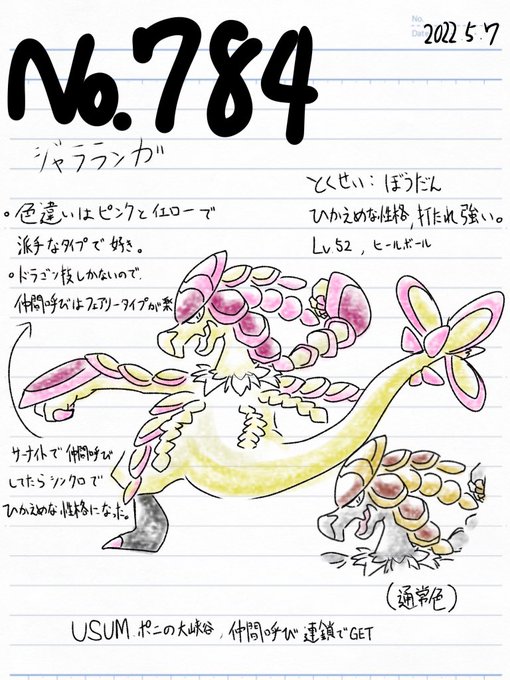 No.
Date
2022.5.7
No.784
ジャラランガ
とくせい：ぼうだん
ひかえめな性格,打たれ強い。
Lv.52, ヒールボール
・色違いはピンクとイエローで
派手なタイプで好き。
・ドラゴン技しかないので、
仲間呼びはフェアリータイプが楽
サーナイトで仲間呼び
してたらシンクロで
ひかえめな性格になった。
(通常色)
USUM.ポニの大峡谷,仲間呼び連鎖でGET